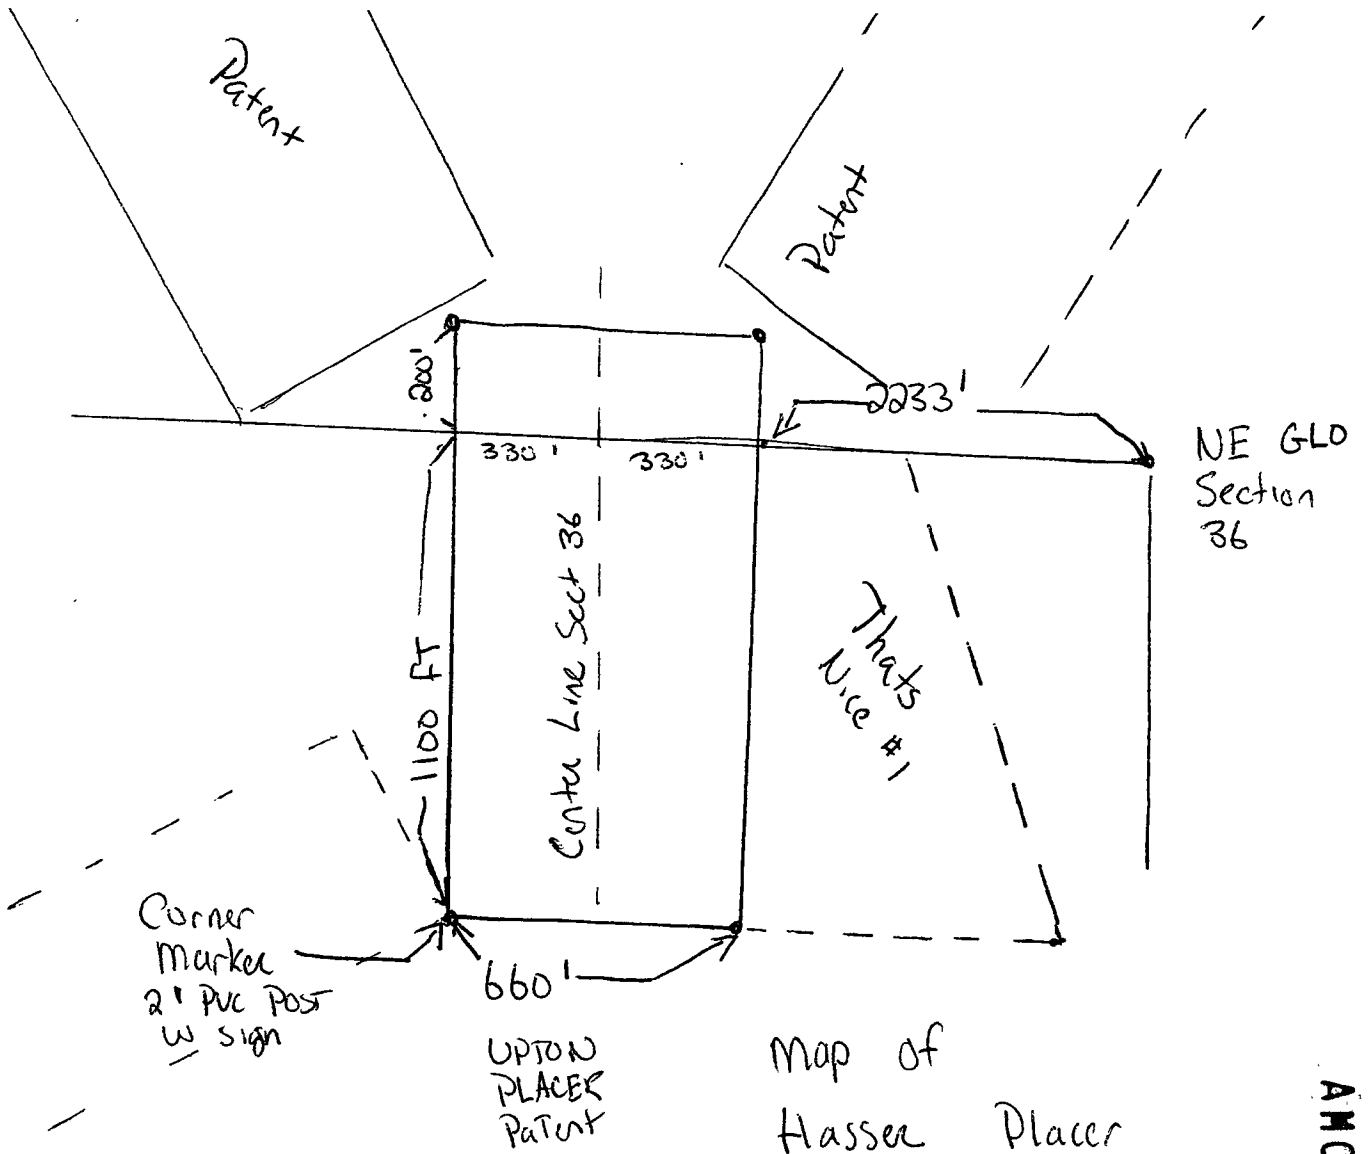 Patent
Patent
200'
2233'
330'
330'
NE GLO
Section
36
1100 FT
Center Line Sect 36
Thats
Nice #1
Corner
Marker
2" PVC POST
W sign
660'
UPTON
PLACER
Patent
Map of
Hassee Placer
AMC